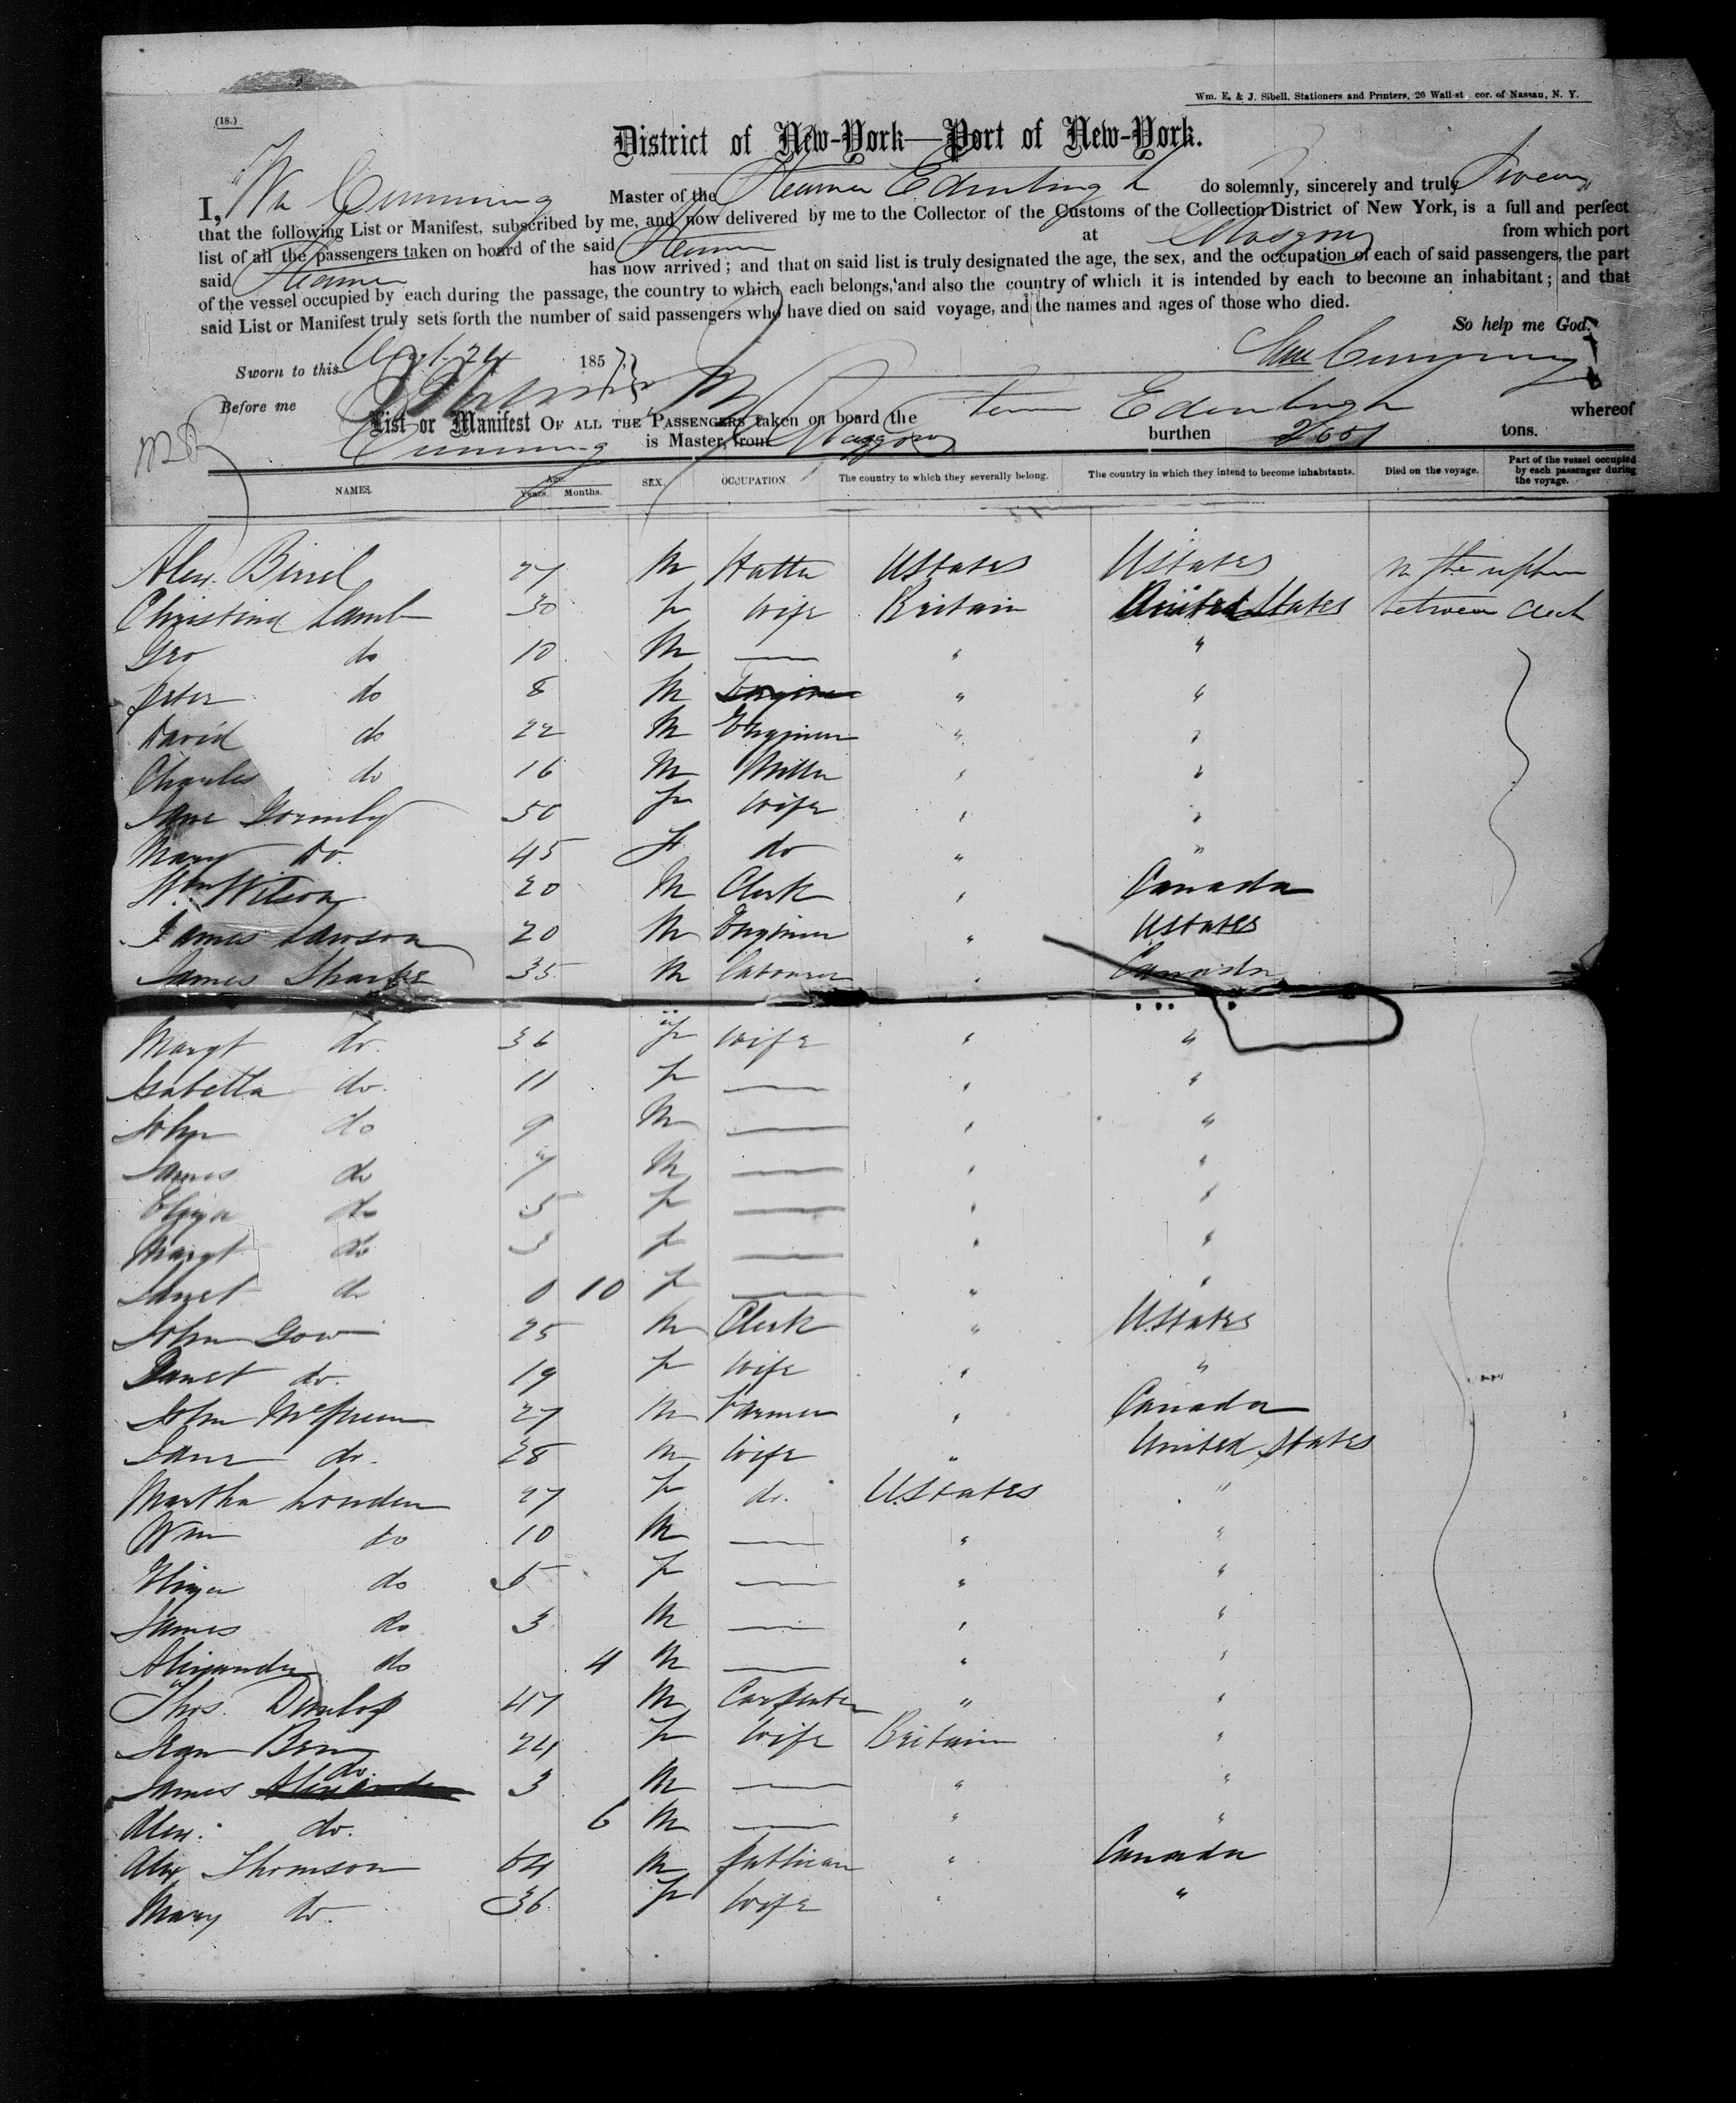 Wm. E. & J. Sibell, Stationers and Printers, 20 Wall-st., cor. of Nassau, N. Y.
(18.)
District of New-York—Port of New-York.
I, Wm Cumming Master of the Steamer Edinburgh do solemnly, sincerely and truly Swear
that the following List or Manifest, subscribed by me, and now delivered by me to the Collector of the Customs of the Collection District of New York, is a full and perfect
list of all the passengers taken on board of the said Steamer at Glasgow from which port
said Steamer has now arrived; and that on said list is truly designated the age, the sex, and the occupation of each of said passengers, the part
of the vessel occupied by each during the passage, the country to which each belongs, and also the country of which it is intended by each to become an inhabitant; and that
said List or Manifest truly sets forth the number of said passengers who have died on said voyage, and the names and ages of those who died.
So help me God.
Sworn to this Augt 24 1857 Wm Cumming
Before me
List or Manifest OF ALL THE PASSENGERS taken on board the Steamer Edinburgh whereof
Cumming is Master, from Glasgow burthen tons.
NAMES. Age. Years. Months. SEX. OCCUPATION The country to which they severally belong. The country in which they intend to become inhabitants. Died on the voyage. Part of the vessel occupied by each passenger during the voyage.
Alexr. Birrel 27 M Hatter UStates UStates
Christina Lamb 30 F Wife Britain United States between deck
Geo do 10 M — " "
Peter do 8 M Engineer " "
David do 22 M Engineer " "
Charles do 16 M Miller " "
Jane Gormly 50 F Wife " "
Mary Do. 45 F do " "
Wm. Wilson 20 M Clerk " Canada
James Lawson 20 M Engineer " UStates
James Sharpe 35 M Labourer " Canada
Margt do. 36 F Wife " "
Isabella do. 11 F — " "
John do 9 M — " "
James do 7 M — " "
Eliza do 5 F — " "
Margt do 3 F — " "
Janet do 0 10 F — " "
John Gow 25 M Clerk " UStates
Janet do. 19 F Wife " "
John 27 M Farmer " Canada
Jane do. 28 M Wife " United States
Martha Louden 27 F do. UStates "
Wm do 10 M — " "
do 5 F — " "
James do 3 M — " "
Alexander do 4 M — " "
Thos. Dunlop 47 M Carpenter " "
Jean 24 F Wife Britain "
James do. 3 M — " "
Alexr. do. 6 M — " "
Alex Thomson 64 M Publican " Canada
Mary do. 36 F Wife " "